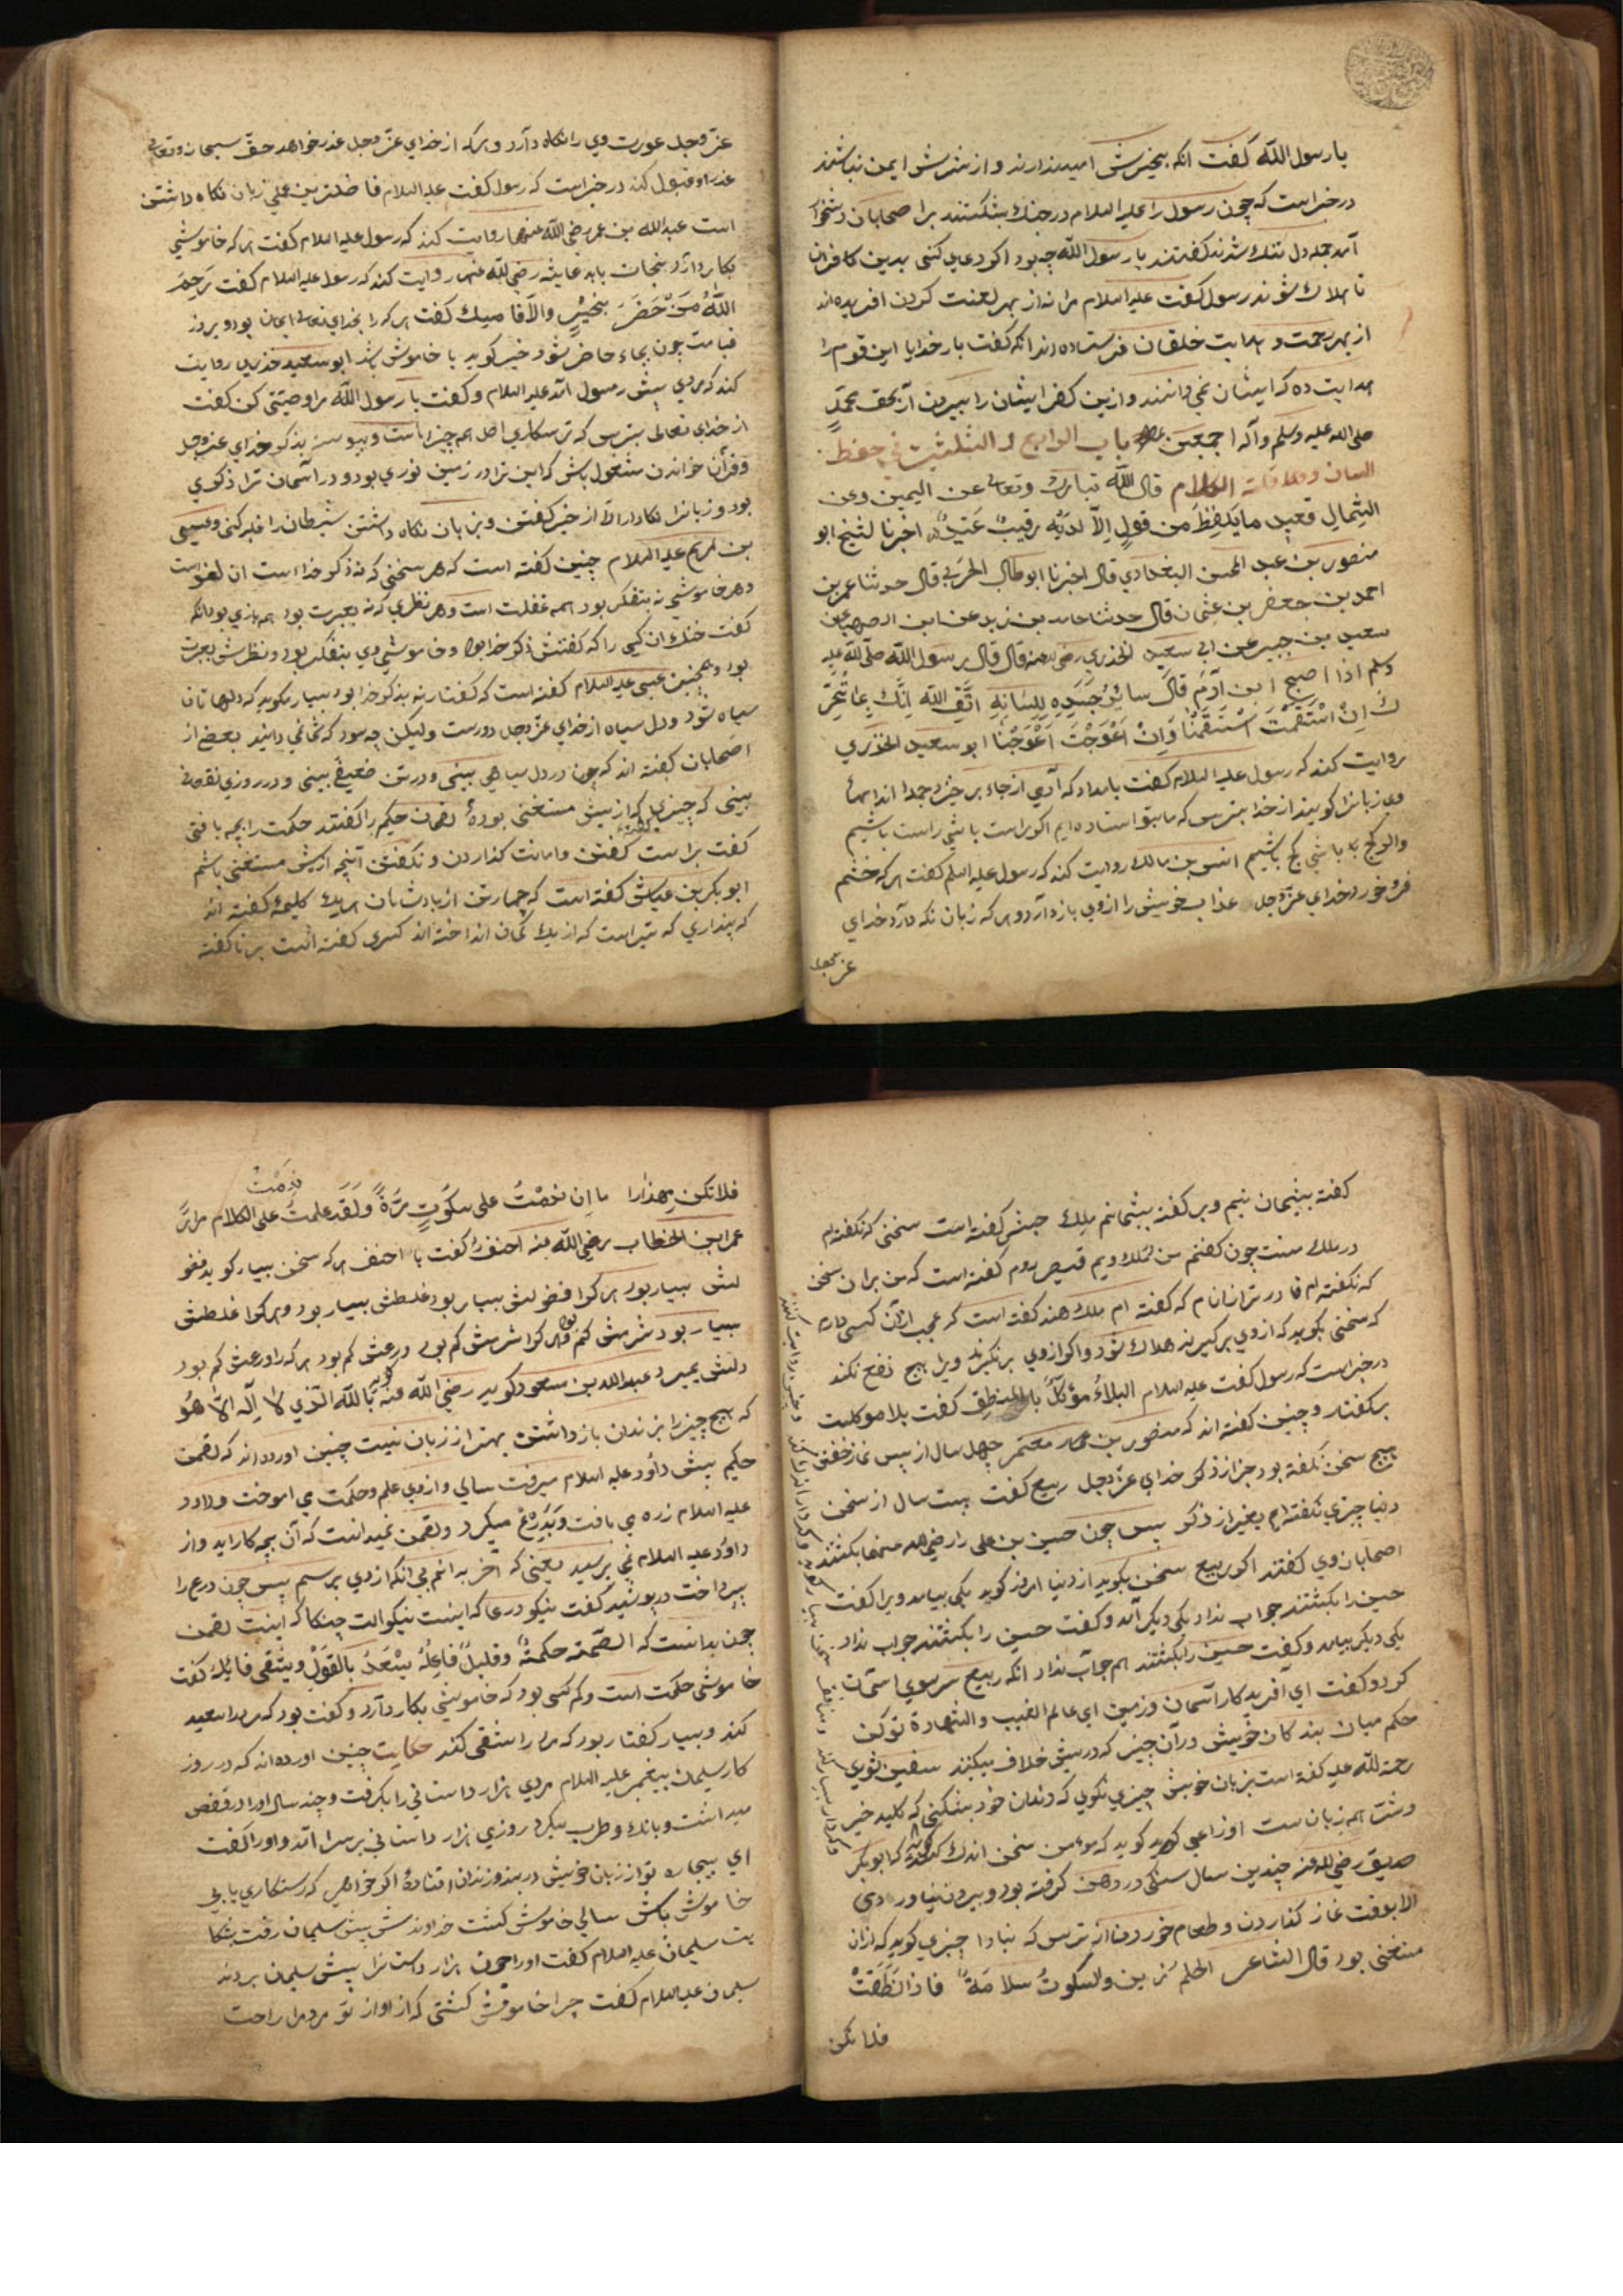 یا رسول الله گفت انکه بخیرش امید ندارند و از شرش ایمن نباشند
در خبراست که چون رسول را علیه السلام در جنك بشکستند بر اصحابان دشخوار
آمد جمله دل تنك شدند گفتند یا رسول الله چه بود اکر دعای کنی بدین کافران
تا هلاك شوند رسول گفت علیه السلام مرا نه از بهر لعنت کردن افریده اند
از بهر رحمت و هدایت خلقان فرستاده اند انکه گفت بار خدایا این قوم را
هدایت ده که ایشان نمی دانند و ازین کفر ایشان را بیرون آر بحق محمد
صلی الله علیه وسلم وآله اجمعین باب الرابع و الثلثین فی حفظ
اللسان و قلة الکلام قال الله تبارك وتعالی عن الیمین وعن
الشمال قعید ما یلفظ من قول الا لدیه رقیب عتید اخبرنا الشیخ ابو
منصور بن عبد المحسن البغدادی قال اخبرنا ابو طالب الحربی قال حدثنا عمر بن
احمد بن جعفر بن عثمان قال حدثنا حماد بن زید عن ابن الصهبا عن
سعید بن جبیر عن ابی سعید الخذری رضی الله عنه قال قال رسول الله صلی الله علیه
وسلم اذا اصبح ابن آدم قال سائر جسده للسانه اتق الله انك
ك ان استقمت استقمنا وان اعوججت اعوججنا ابو سعید الخذری
روایت کند که رسول علیه السلام گفت بامداد که آدمی از جاء بر خیزد جمله اندامهاء
وی زبانرا کویند از خدا بترس که ما بتو استاده ایم اکر راست باشی راست باشیم
واکر کج باشی کج باشیم انس بن مالك روایت کند که رسول علیه السلام گفت هر که خشم
فرو خورد خدای عز وجل عذاب خویش را از وی باز دارد و هر که زبان نکه دارد خدای
عز وجل
عز وجل عورت وی را نکاه دارد و هرکه از خدای عز وجل عذر خواهد حق سبحانه وتعالی
عذر او قبول کند در خبراست که رسول گفت علیه السلام فاضلترین عملی زبان نکاه داشتن
است عبد الله بن عمر رضی الله عنهما روایت کند که رسول علیه السلام گفت هر که خاموشی
بکار دارد نجات یابد عایشه رضی الله عنها روایت کند که رسول علیه السلام گفت رحم
الله من حضر بخیر والا فامسك گفت هر که را بخدای تعالی ایمان بود و بروز
قیامت چون بجاء حاضر شود خیر کوید یا خاموش باشد ابو سعید خذری روایت
کند که مردی پیش رسول آمد علیه السلام و گفت یا رسول الله مرا وصیتی کن گفت
از خدای تعالی بترس که ترسکاری اصل همه چیزهاست و پیوسته بذکر خدای عز وجل
و قرآن خواندن مشغول باش که این ترا در زمین نوری بود و در آسمان ترا ذکری
بود و زبانرا نکاه دار الا از خیر گفتن و بزبان نکاه داشتن شیطان را غلبه کنی و عیسی
بن مریم علیه السلام چنین گفته است که هر سخنی که نه ذکر خدا است ان لغو است
و هر خاموشی نه بتفکر بود همه غفلت است و هر نظری که نه بعبرت بود همه بازی بود انکه
گفت خنك ان کسی را که گفتنش ذکر خدا بود و خاموشی وی بتفکر بود و نظرش بعبرت
بود و همچنین عیسی علیه السلام گفته است که گفتار نه بذکر خدا بود بسیار مکوید که دلها تان
سیاه شود و دل سیاه از خدای عز وجل دورست ولیکن چه سود که شما نمی دانید بعضی از
اصحابان گفته اند که چون در دل سیاهی بینی و در تن ضعیفی بینی و در روزی نقصانی
بینی که چیزی گفته که از بیش مستغنی بودهٔ لقمان حکیم را گفتند حکمت را بچه یافتی
گفت براست گفتن و امانت کذاردن و نکفتن آنچه ازیش مستغنی باشم
ابو بکر بن عیاش گفته است که چهار تن از پادشاهان هر یك کلیمهٔ گفته اند
که پنداری که تیر است که از یك کمان انداخته اند کسری گفته است بر ناگفته
گفته پشیمان نیم و بر گفته پشیمانم ملك حبش گفته است سخنی که نکفته ام
در ملك منست چون گفتم من ملك ویم قیصر روم گفته است که من بران سخن
که نکفته ام قادر تر از انم که گفته ام ملك هند گفته است که عجب از ان کسی دارم
که سخنی بکوید که از وی برکیرند هلاك شود و اکر از وی برنکیرند ویرا هیچ نفع نکند
در خبراست که رسول گفت علیه السلام البلاء مؤکل بالمنطق گفت بلا موکلست
بر گفتار و چنین گفته اند که منصور بن معتمر چهل سال از پس نماز خفتن
هیچ سخن نکفته بود جز از ذکر خدای عز وجل ربیع گفت بیست سال از سخن
دنیا چیزی نکفته ام بغیر از ذکر پس چون حسین بن علی را رضی الله عنهما بکشتند
اصحابان وی گفتند اکر ربیع سخن بکوید از دنیا امروز کوید یکی بیامد ویرا گفت
حسین را بکشتند جواب نداد یکی دیکر آمد و گفت حسین را بکشتند جواب نداد
یکی دیکر بیامد و گفت حسین را بکشتند هم جواب نداد انکه ربیع سر سوی اسمان
کرد و گفت ای آفریدکار آسمان و زمین ای عالم الغیب والشهادة تو کن
حکم میان بندکان خویش در آن چیز که در پیش خلاف میکنند سفین ثوری
رحمة الله علیه گفته است بزبان خویش چیزی نکوی که دندان خود بشکنی که کلید خیر
و شر همه زبان ست اوزاعی کوید که مومن سخن اندك کند که ابوبکر
صدیق رضی الله عنه چندین سال سنکی در دهن کرفته بود و بیرون نیاوردی
الا بوقت نماز کذاردن و طعام خوردن از ترس که نبادا چیزی کوید که ازان
مستغنی بود قال الشاعر الحلم زین والسکوت سلامة فاذا نطقت
فلا تکن
فلا تکن مهذارا ما ان ندمت علی سکوت مرة ولقد ندمت علی الکلام مرارا
عمر ابن الخطاب رضی الله عنه احنف را گفت یا احنف هر که سخن بسیار کوید فضو
لش بسیار بود هر کرا فضولش بسیار بود غلطش بسیار بود و هر کرا غلطش
بسیار بود شرمش کم بود و هر کرا شرمش کم بود ورعش کم بود هر که را ورعش کم بود
دلش بمیرد عبد الله بن مسعود کوید رضی الله عنه بالله الذی لا اله الا هو
که هیچ چیز را بزندان باز داشتن بهتر از زبان نیست چنین اورده اند که لقمن
حکیم پیش داود علیه السلام میرفت سالی و از وی علم و حکمت می اموخت و داود
علیه السلام زره می بافت و تدریع میکرد و لقمن نمیدانست که آن بچه کار اید و از
داود علیه السلام نمی پرسید یعنی که اخر بدانم بی انکه از وی برسم پس چون درع را
بپرداخت در پوشید گفت نیکو درعا که اینست نیکو الت جنکا که اینست لقمن
چون بدانست که الصمة حکمة وقلیل فاعله یسعد بالقول ویشقی قایله گفت
خاموشی حکمت است و کم کسی بود که خاموشی بکار دارد و گفت بود که مرد را سعید
کند و بسیار گفتار بود که مرد را شقی کند حکایت چنین اورده اند که در روز
کار سلیمان پیغمبر علیه السلام مردی هزار داستانی را بکرفت و چند سال او را در قفص
میداشت و بانك و طرب میکرد روزی هزار داستانی بر سر آمد و او را گفت
ای بیچاره تو از زبان خویش در بند و زندان افتادهٔ اکر خواهی که رستکاری یابی
خاموش باش سالی خاموش کشت خداوندش پیش سلیمان رفت بشکا
یت سلیمان علیه السلام گفت او را چون هزار دستانرا پیش سلیمان بردند
سلیمان علیه السلام گفت چرا خاموش کشتی که از اواز تو مردمرا راحت